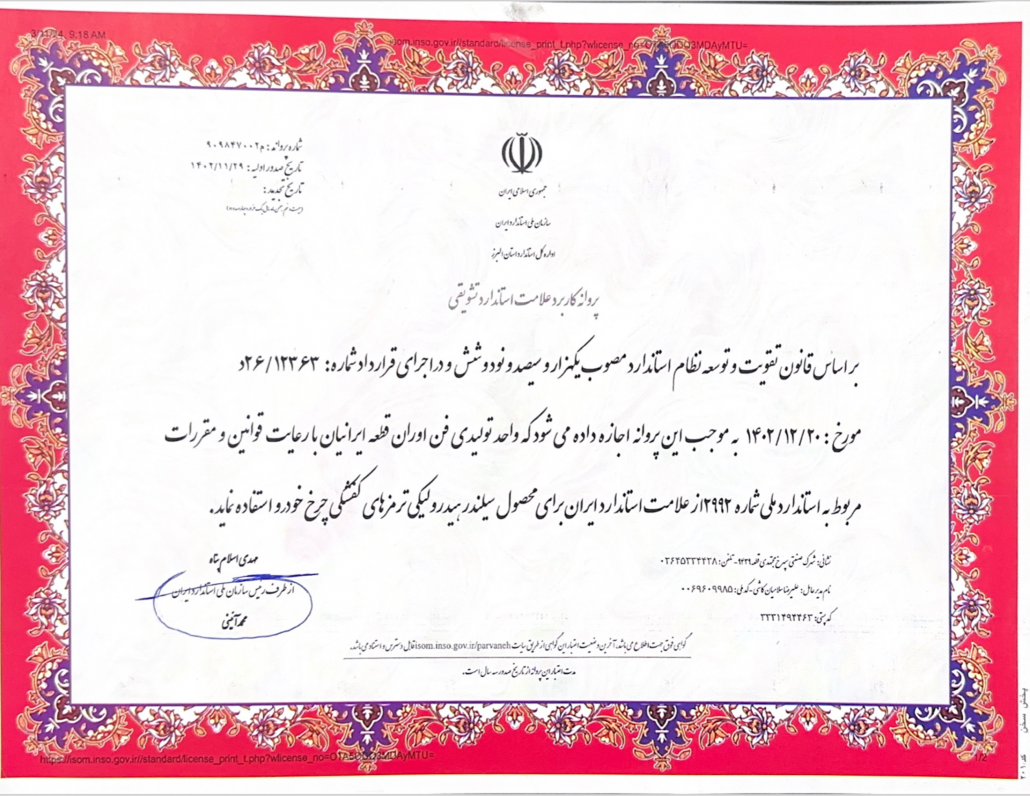 3/11/24, 9:18 AM
isom.inso.gov.ir//standard/license_print_t.php?wlicense_no=
شماره پروانه: م۹۰۹۸۴۷۰۰۲
تاریخ صدور اولیه: ۱۴۰۲/۱۱/۲۹
تاریخ تمدید:
جمهوری اسلامی ایران
سازمان ملی استاندارد ایران
اداره کل استاندارد استان البرز
پروانه کاربرد علامت استاندارد تشویقی
بر اساس قانون تقویت و توسعه نظام استاندارد مصوب یکهزار و سیصد و نود و شش و در اجرای قرارداد شماره: ۲۶/۱۲۳۶۳د
مورخ: ۱۴۰۲/۱۲/۲۰ به موجب این پروانه اجازه داده می شود که واحد تولیدی فن اوران قطعه ایرانیان با رعایت قوانین و مقررات
مربوط به استاندارد ملی شماره ۲۹۹۲از علامت استاندارد ایران برای محصول سیلندر هیدرولیکی ترمزهای کفشکی چرخ خودرو استفاده نماید.
نشانی: شهرک صنعتی تلفن: ۰۲۶۴۵۳۳۴۴۳۸
نام مدیرعامل: علیرضا سلامیان کاشی-کدملی: ۰۰۶۹۶۰۹۹۸۵
کدپستی: ۳۳۳۱۴۹۴۴۶۳
مهدی اسلام پناه
از طرف رئیس سازمان ملی استاندارد ایران
گواهی فوق جهت اطلاع می باشد. آخرین وضعیت اعتبار این گواهی از طریق سایت isom.inso.gov.ir/parvanehقابل دسترس و استناد می باشد.
مدت اعتبار این پروانه از تاریخ صدور سه سال است.
https://isom.inso.gov.ir//standard/license_print_t.php?wlicense_no=
1/2